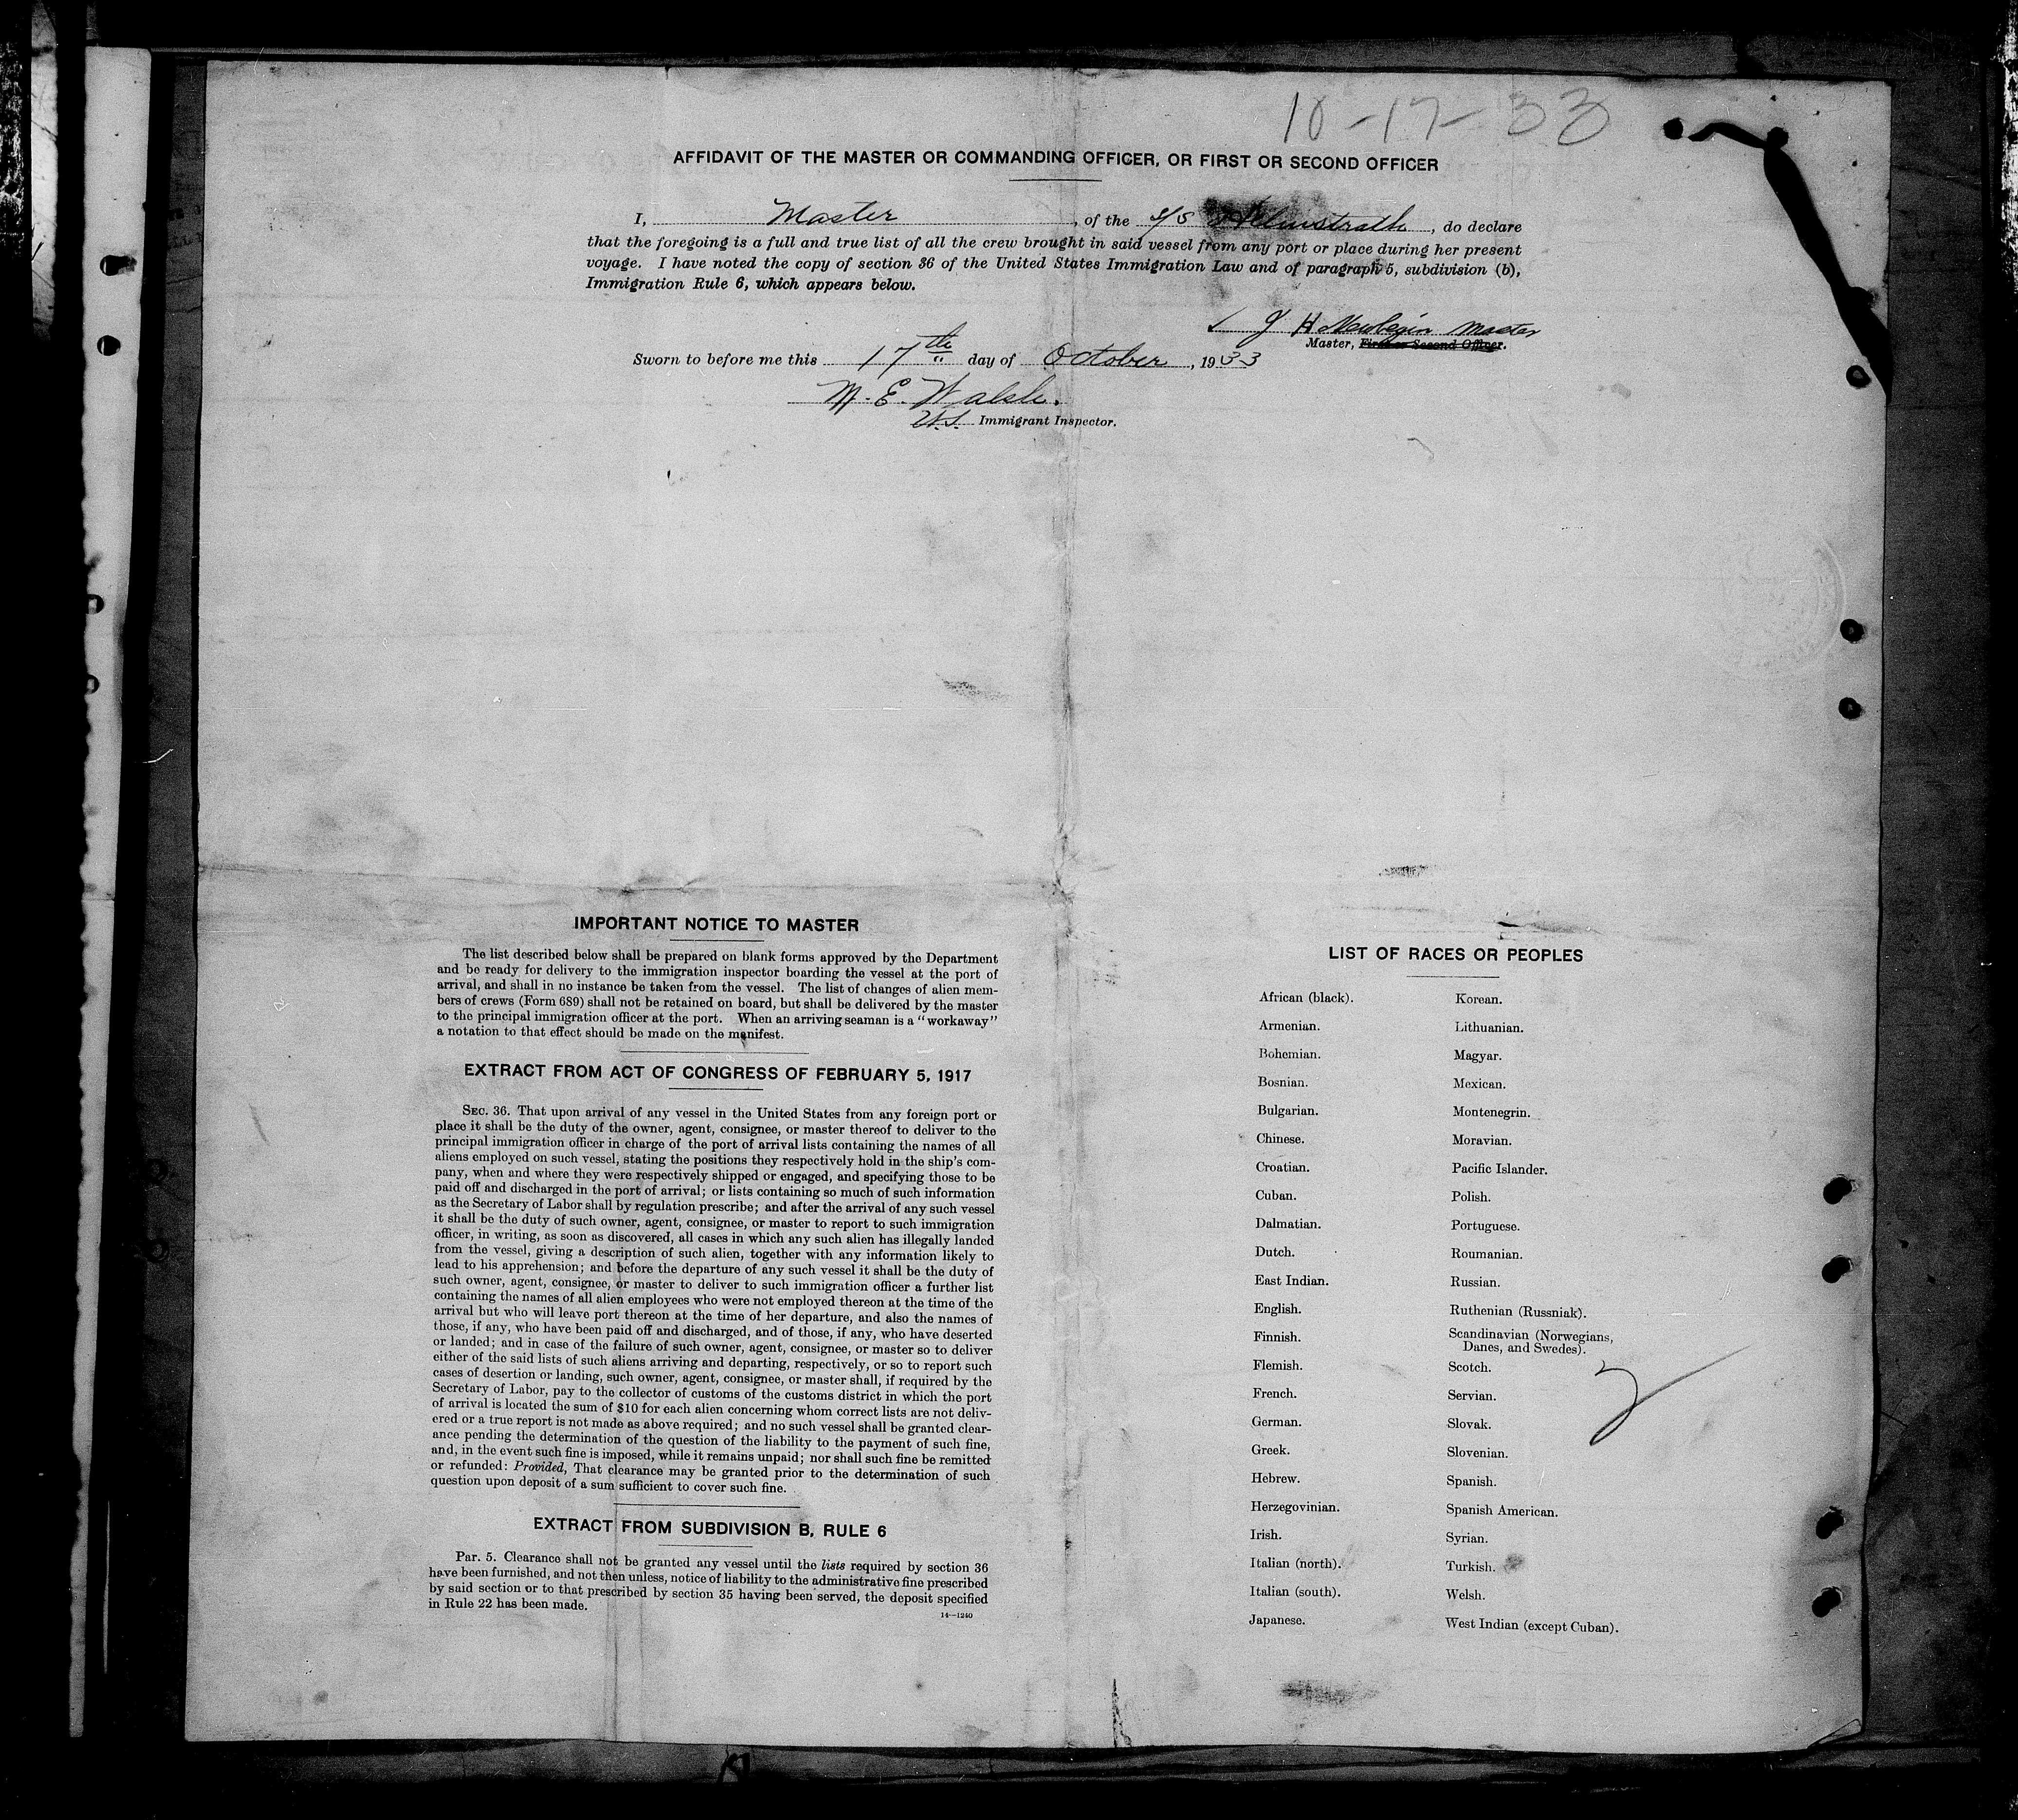 10-17-33
AFFIDAVIT OF THE MASTER OR COMMANDING OFFICER, OR FIRST OR SECOND OFFICER
I, Master, of the s/s Helmstrath, do declare
that the foregoing is a full and true list of all the crew brought in said vessel from any port or place during her present
voyage. I have noted the copy of section 36 of the United States Immigration Law and of paragraph 5, subdivision (b),
Immigration Rule 6, which appears below.
J H Newbegin Master
Master, First or Second Officer.
Sworn to before me this 17th day of October, 1933
M. E. Walsh.
U.S. Immigrant Inspector.
IMPORTANT NOTICE TO MASTER
The list described below shall be prepared on blank forms approved by the Department
and be ready for delivery to the immigration inspector boarding the vessel at the port of
arrival, and shall in no instance be taken from the vessel. The list of changes of alien mem-
bers of crews (Form 689) shall not be retained on board, but shall be delivered by the master
to the principal immigration officer at the port. When an arriving seaman is a "workaway"
a notation to that effect should be made on the manifest.
EXTRACT FROM ACT OF CONGRESS OF FEBRUARY 5, 1917
SEC. 36. That upon arrival of any vessel in the United States from any foreign port or
place it shall be the duty of the owner, agent, consignee, or master thereof to deliver to the
principal immigration officer in charge of the port of arrival lists containing the names of all
aliens employed on such vessel, stating the positions they respectively hold in the ship's com-
pany, when and where they were respectively shipped or engaged, and specifying those to be
paid off and discharged in the port of arrival; or lists containing so much of such information
as the Secretary of Labor shall by regulation prescribe; and after the arrival of any such vessel
it shall be the duty of such owner, agent, consignee, or master to report to such immigration
officer, in writing, as soon as discovered, all cases in which any such alien has illegally landed
from the vessel, giving a description of such alien, together with any information likely to
lead to his apprehension; and before the departure of any such vessel it shall be the duty of
such owner, agent, consignee, or master to deliver to such immigration officer a further list
containing the names of all alien employees who were not employed thereon at the time of the
arrival but who will leave port thereon at the time of her departure, and also the names of
those, if any, who have been paid off and discharged, and of those, if any, who have deserted
or landed; and in case of the failure of such owner, agent, consignee, or master so to deliver
either of the said lists of such aliens arriving and departing, respectively, or so to report such
cases of desertion or landing, such owner, agent, consignee, or master shall, if required by the
Secretary of Labor, pay to the collector of customs of the customs district in which the port
of arrival is located the sum of $10 for each alien concerning whom correct lists are not deliv-
ered or a true report is not made as above required; and no such vessel shall be granted clear-
ance pending the determination of the question of the liability to the payment of such fine,
and, in the event such fine is imposed, while it remains unpaid; nor shall such fine be remitted
or refunded: Provided, That clearance may be granted prior to the determination of such
question upon deposit of a sum sufficient to cover such fine.
EXTRACT FROM SUBDIVISION B, RULE 6
Par. 5. Clearance shall not be granted any vessel until the lists required by section 36
have been furnished, and not then unless, notice of liability to the administrative fine prescribed
by said section or to that prescribed by section 35 having been served, the deposit specified
in Rule 22 has been made.
14—1240
LIST OF RACES OR PEOPLES
African (black).
Armenian.
Bohemian.
Bosnian.
Bulgarian.
Chinese.
Croatian.
Cuban.
Dalmatian.
Dutch.
East Indian.
English.
Finnish.
Flemish.
French.
German.
Greek.
Hebrew.
Herzegovinian.
Irish.
Italian (north).
Italian (south).
Japanese.
Korean.
Lithuanian.
Magyar.
Mexican.
Montenegrin.
Moravian.
Pacific Islander.
Polish.
Portuguese.
Roumanian.
Russian.
Ruthenian (Russniak).
Scandinavian (Norwegians,
Danes, and Swedes).
Scotch.
Servian.
Slovak.
Slovenian.
Spanish.
Spanish American.
Syrian.
Turkish.
Welsh.
West Indian (except Cuban).